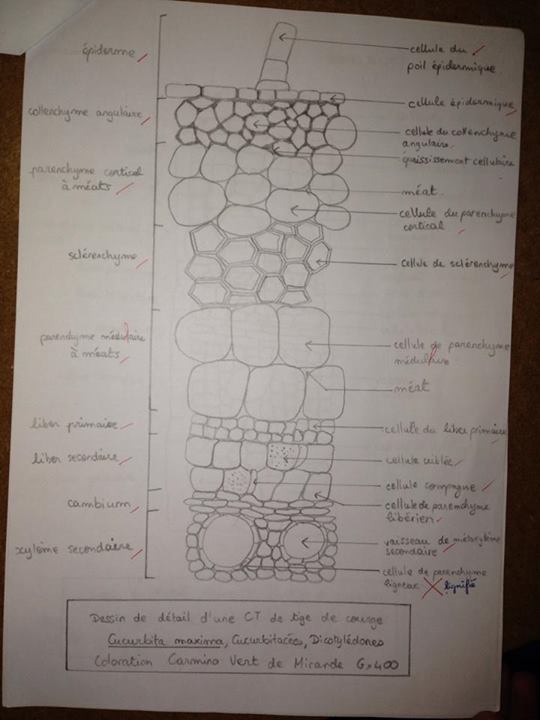 épiderme
collenchyme angulaire
parenchyme cortical
à méats
sclérenchyme
parenchyme médulaire
à méats
liber primaire
liber secondaire
cambium
xylème secondaire
cellule du
poil épidermique
cellule épidermique
cellule du collenchyme
angulaire
épaississement cellulaire
méat
cellule du parenchyme
cortical
cellule de sclérenchyme
cellule de parenchyme
médulaire
méat
cellule du liber primaire
cellule criblée
cellule compagne
cellule de parenchyme
libérien
vaisseau de métaxylème
secondaire
cellule de parenchyme
ligneux lignifié
Dessin de détail d'une CT de tige de courge
Cucurbita maxima, Cucurbitacées, Dicotylédones
Coloration Carmino Vert de Mirande G×400